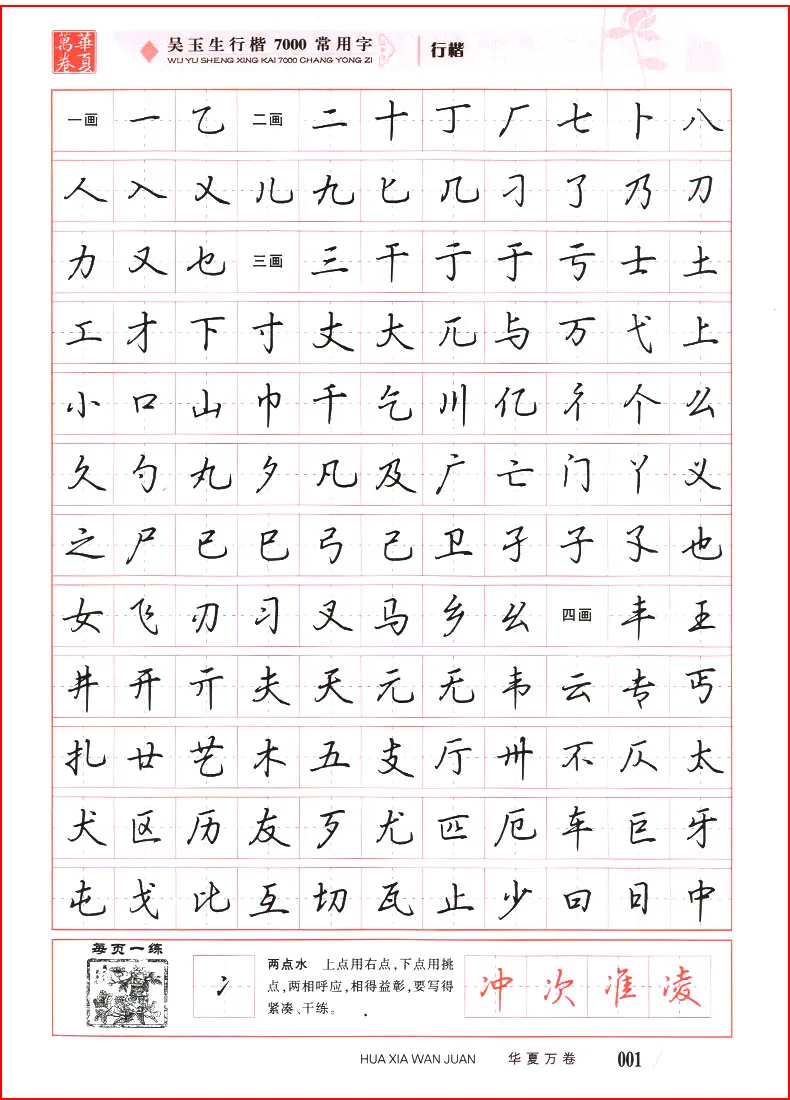 華夏
萬卷
吴玉生行楷 7000 常用字
WU YU SHENG XING KAI 7000 CHANG YONG ZI
行楷
一画 一 乙 二画 二 十 丁 厂 七 卜 八
人 入 乂 儿 九 匕 几 刁 了 乃 刀
力 又 乜 三画 三 干 亍 于 亏 士 土
工 才 下 寸 丈 大 兀 与 万 弋 上
小 口 山 巾 千 乞 川 亿 彳 个 么
久 勺 丸 夕 凡 及 广 亡 门 丫 义
之 尸 已 巳 弓 己 卫 孑 子 孓 也
女 飞 刃 习 叉 马 乡 幺 四画 丰 王
井 开 亓 夫 天 元 无 韦 云 专 丐
扎 廿 艺 木 五 支 厅 卅 不 仄 太
犬 区 历 友 歹 尤 匹 厄 车 巨 牙
屯 戈 比 互 切 瓦 止 少 曰 日 中
每页一练
冫
两点水 上点用右点,下点用挑
点,两相呼应,相得益彰,要写得
紧凑、干练。
冲 次 准 凌
HUA XIA WAN JUAN 华夏万卷 001